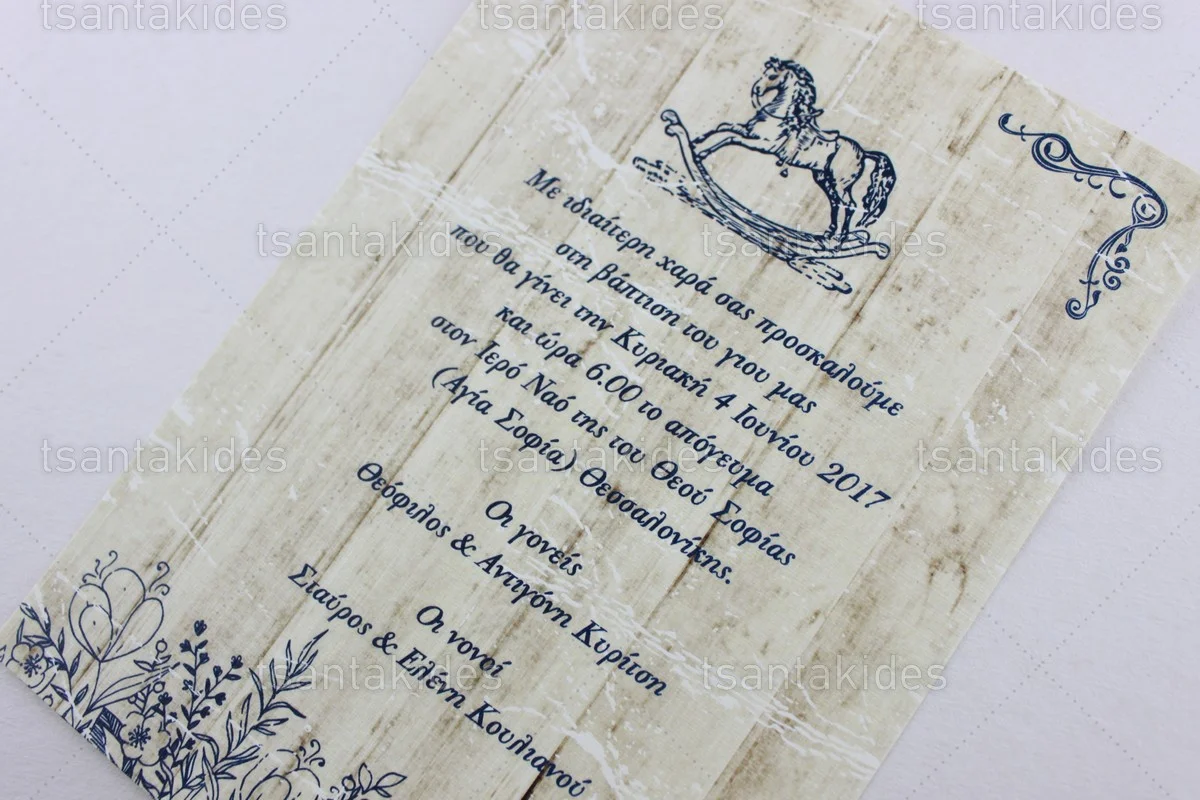 Με ιδιαίτερη χαρά σας προσκαλούμε
στη βάπτιση του γιου μας
που θα γίνει την Κυριακή 4 Ιουνίου 2017
και ώρα 6.00 το απόγευμα
στον Ιερό Ναό της του Θεού Σοφίας
(Αγία Σοφία) Θεσσαλονίκης.
Οι γονείς
Θεόφιλος & Αντιγόνη Κυρίτση
Οι νονοί
Σταύρος & Ελένη Κουλιανού
tsantakides
tsantakides
tsantakides
tsantakides
tsantakides
tsantakides
tsantakides
tsantakides
tsantakides
tsantakides